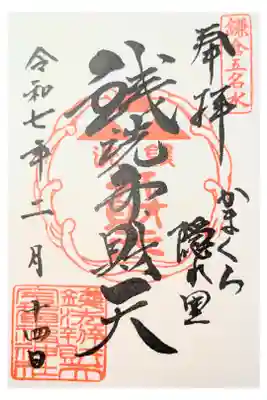 鎌倉五名水
奉拝
かまくら
隠れ里
銭洗弁財天
令和七年二月
十四日